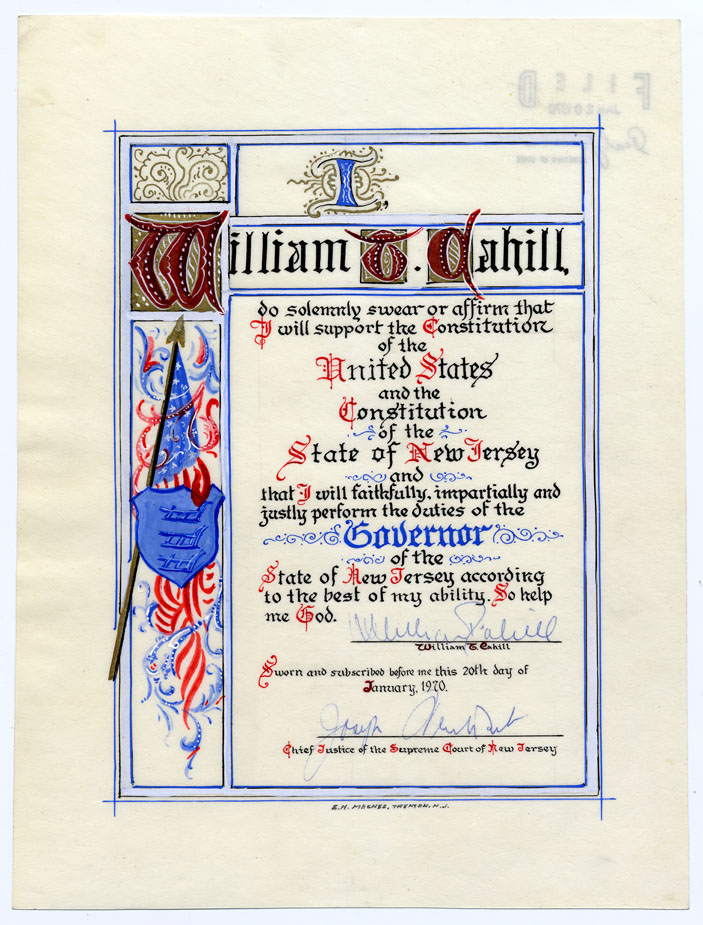 FILED
JAN 20 1970
I,
William T. Cahill,
do solemnly swear or affirm that
I will support the Constitution
of the
United States
and the
Constitution
of the
State of New Jersey
and
that I will faithfully, impartially and
justly perform the duties of the
Governor
of the
State of New Jersey according
to the best of my ability. So help
me God.
William T. Cahill
William T. Cahill
Sworn and subscribed before me this 20th day of
January, 1970.
Joseph Weintraub
Chief Justice of the Supreme Court of New Jersey
E.H. MAGNEE, TRENTON, N.J.